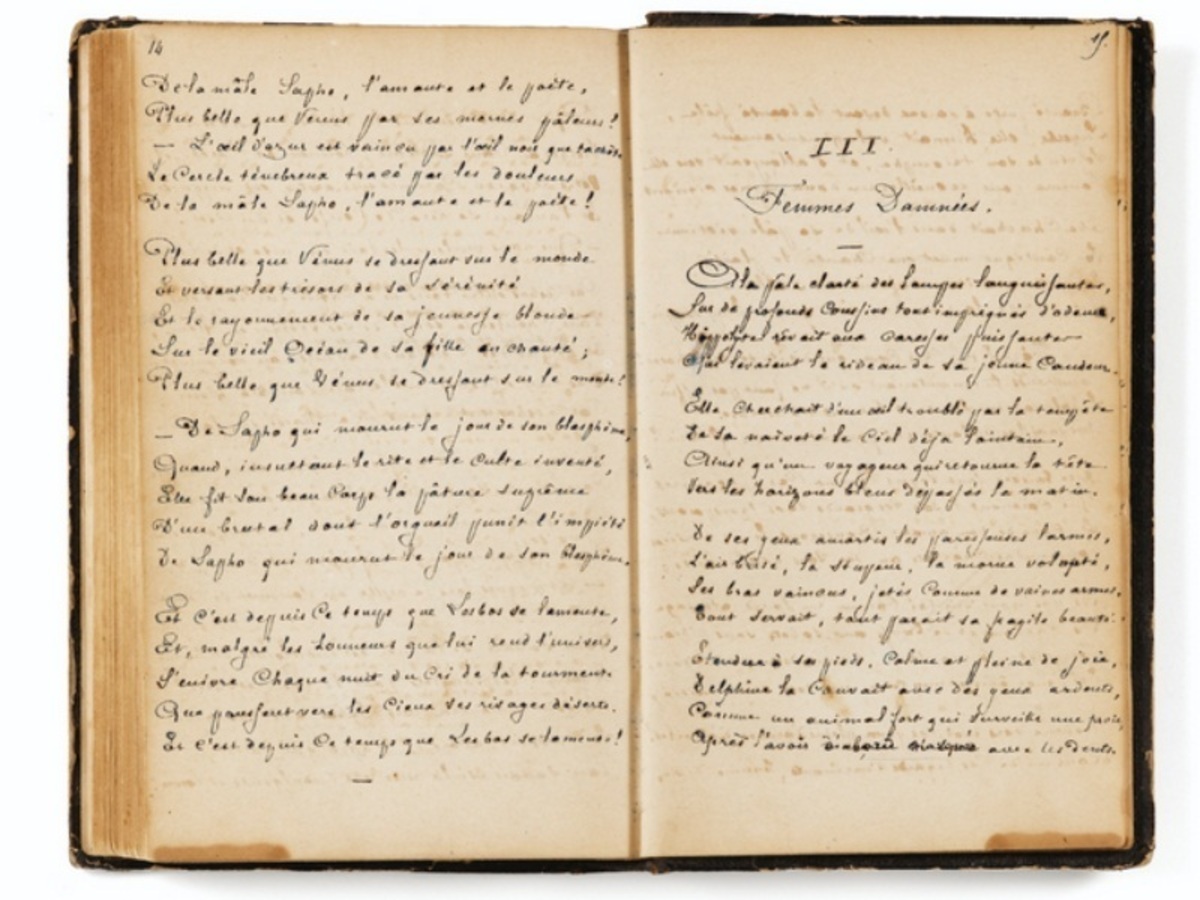 14
De la mâle Sapho, l'amante et le poète,
Plus belle que Vénus par ses mornes pâleurs !
— L'œil d'azur est vaincu par l'œil noir que tachète
Le Cercle ténébreux tracé par les douleurs
De la mâle Sapho, l'amante et le poète !
Plus belle que Vénus se dressant sur le monde
Et versant les trésors de sa sérénité
Et le rayonnement de sa jeunesse blonde
Sur le vieil Océan de sa fille enchanté ;
Plus belle que Vénus se dressant sur le monde !
— De Sapho qui mourut le jour de son blasphème,
Quand, insultant le rite et le Culte inventé,
Elle fit son beau Corps la pâture suprême
D'un brutal dont l'orgueil punit l'impiété
De Sapho qui mourut le jour de son blasphème.
Et c'est depuis Ce temps que Lesbos se lamente,
Et, malgré les honneurs que lui rend l'univers,
S'enivre Chaque nuit du Cri de la tourmente
Que poussent vers les Cieux ses rivages déserts.
Et C'est depuis Ce temps que Lesbos se lamente !
15.
III.
Femmes Damnées.
A la pâle clarté des Lampes languissantes,
Sur de profonds Coussins tout imprégnés d'odeur,
Hippolyte rêvait aux caresses puissantes
Qui levaient le rideau de sa jeune Candeur.
Elle Cherchait d'un œil troublé par la tempête
De sa naïveté le Ciel déjà lointain,
Ainsi qu'un voyageur qui retourne la tête
Vers les horizons bleus dépassés le matin.
De ses yeux amortis les paresseuses larmes,
L'air brisé, la stupeur, la morne volupté,
Ses bras vaincus, jetés Comme de vaines armes,
Tout servait, tout parait sa fragile beauté.
Étendue à ses pieds, Calme et pleine de joie,
Delphine la Couvait avec des yeux ardents,
Comme un animal fort qui surveille une proie,
Après l'avoir d'abord marquée avec les dents.